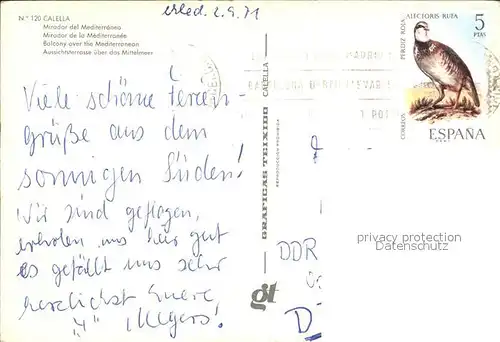 Nº 120 CALELLA
Mirador del Mediterráneo
Mirador de la Mediterranée
Balcony over the Mediterranean
Aussichtsterrasse über das Mittelmeer
erled. 2.9.71
Viele schöne Ferien-
grüße aus dem
sonnigen Süden!
Wir sind geflogen,
erholen uns hier gut
es gefällt uns sehr
herzlichst Euere
Meyers!
GRAFICAS TEIXIDO CALELLA
REPRODUCCION PROHIBIDA
gt
PERDIZ ROJA
ALECTORIS RUFA
5
PTAS
CORREOS
ESPAÑA
DDR
D
privacy protection
Datenschutz